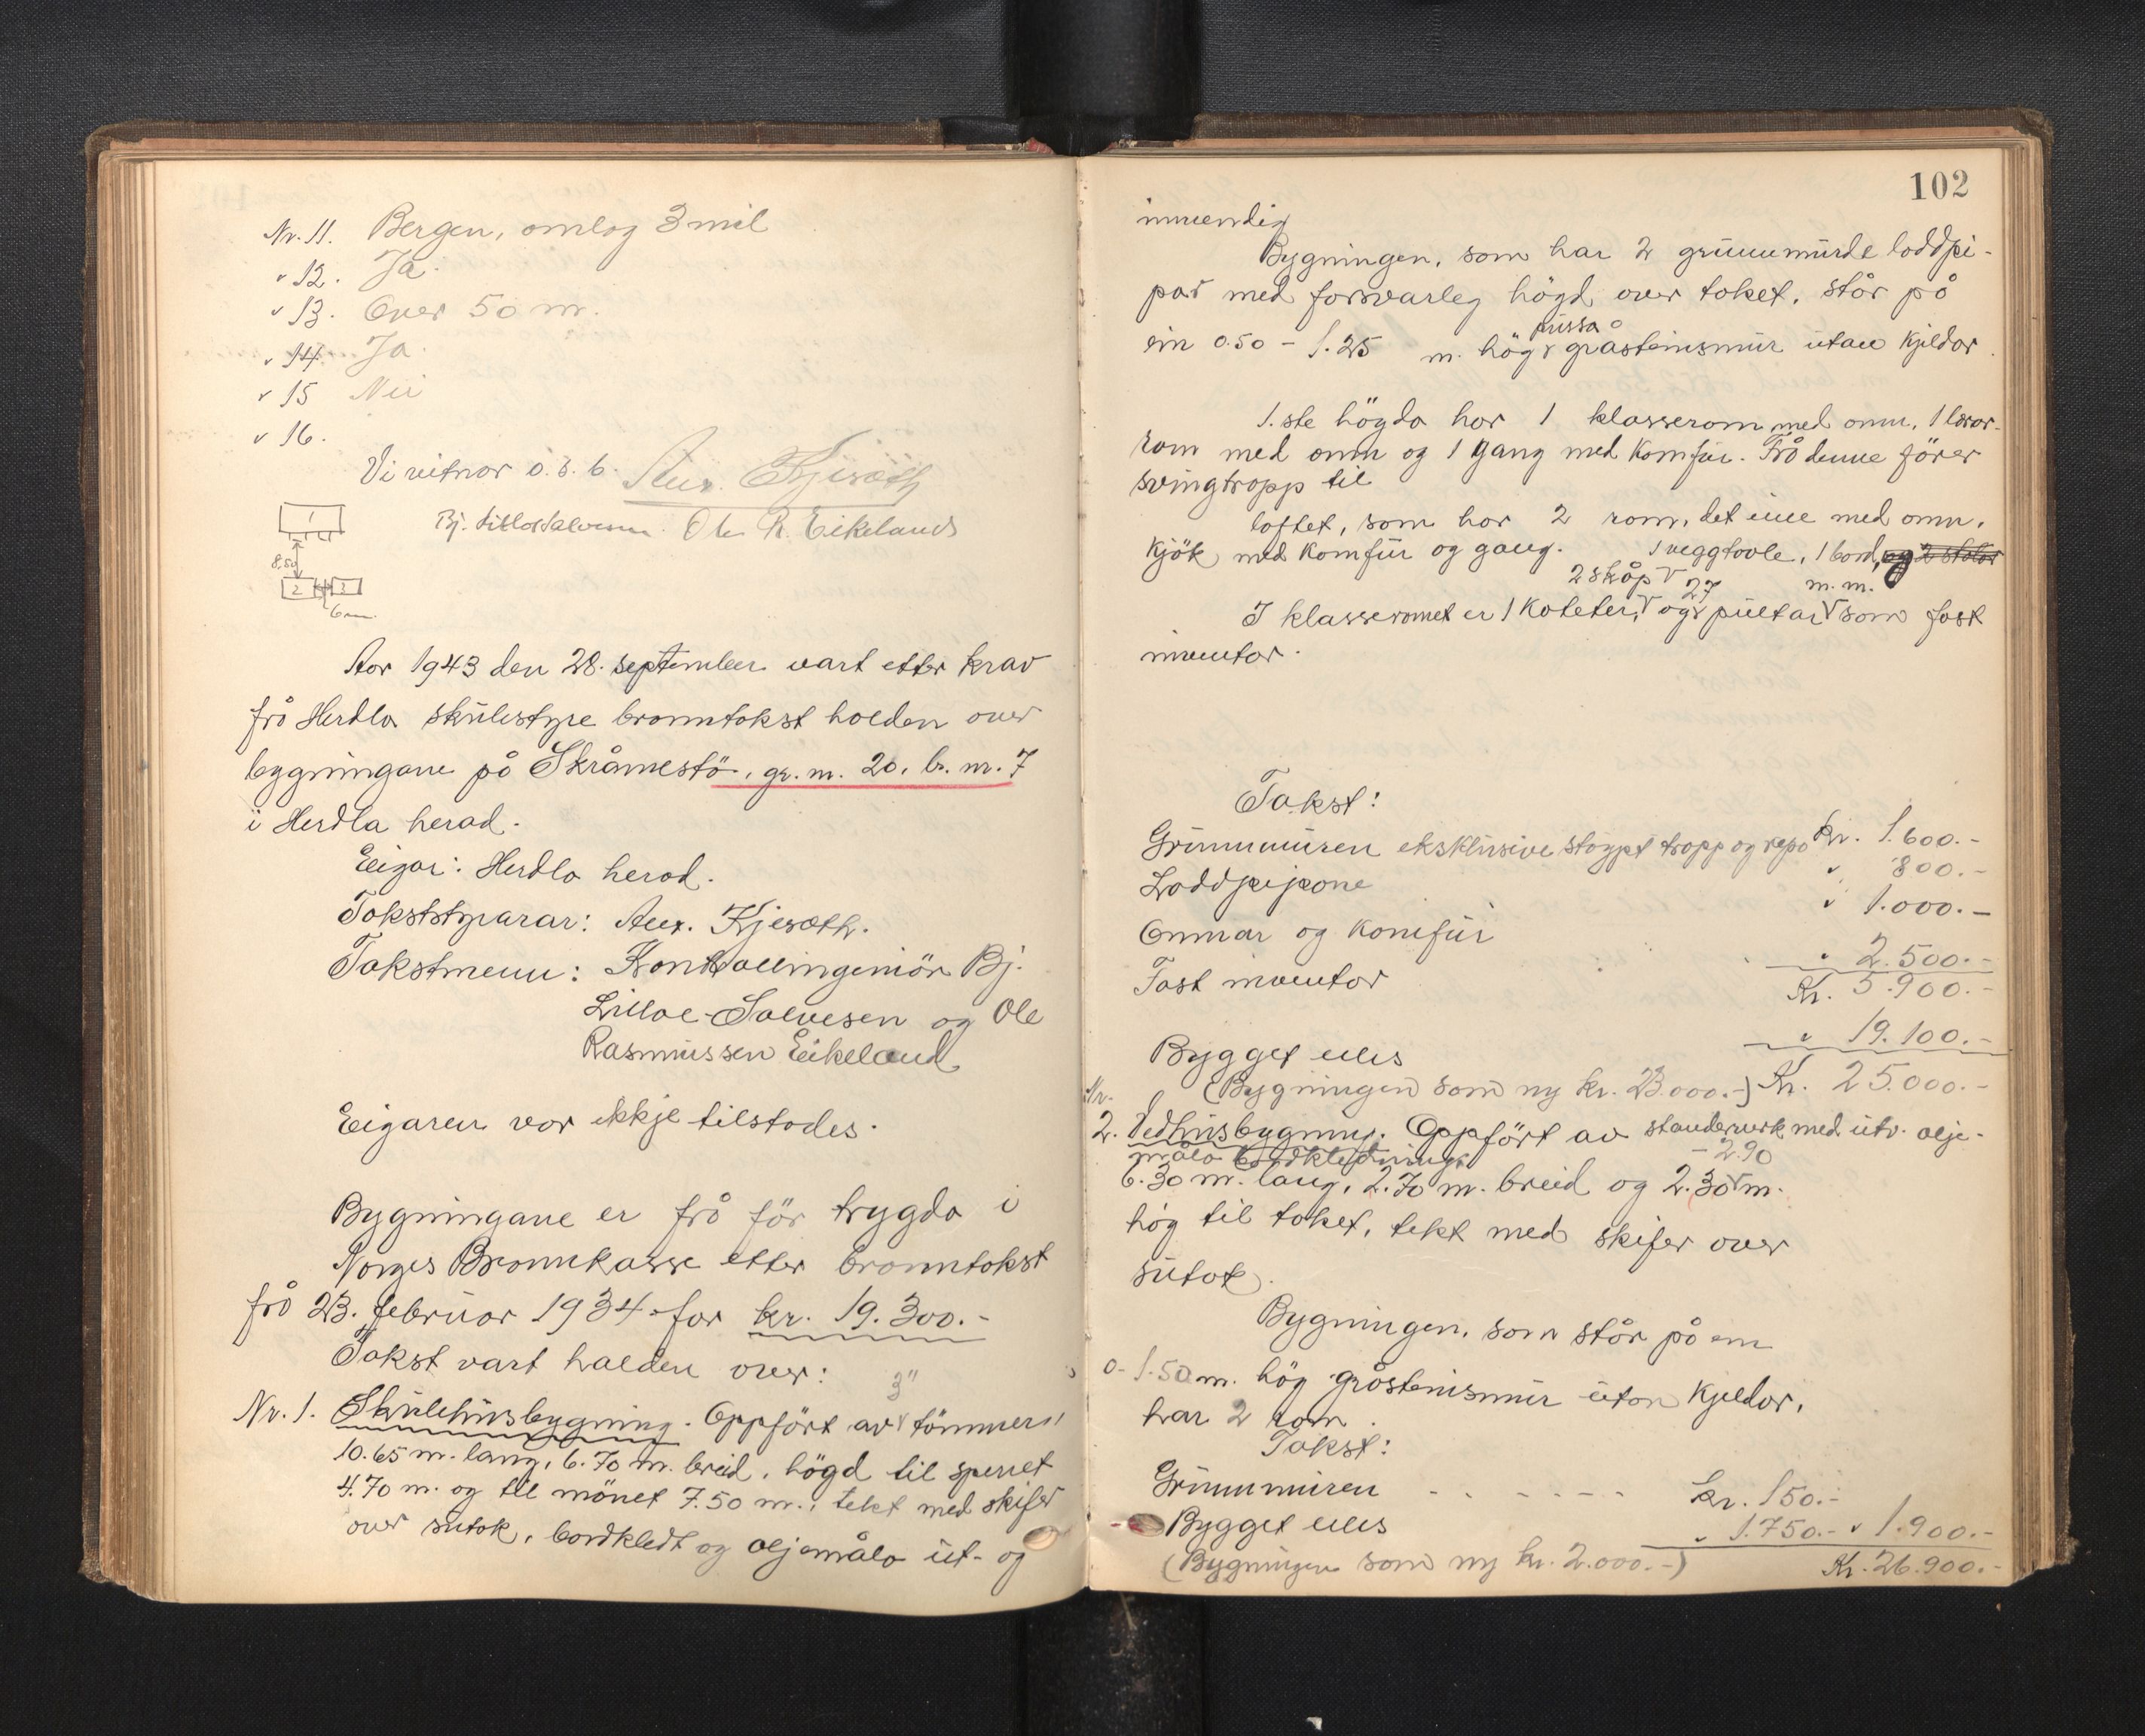 Nr. 11. Bergen, omlag 3 mil
" 12. Ja.
" 13. Over 50 m.
" 14. Ja.
" 15 Nei
" 16.
Vi vitnar o.s.b. Anx. Kjesæth
Bj. Lilloe Salvesen. Ole R. Eikeland
1
8,50
2 3
6 m.
Aar 1943 den 28. september vart etter krav
frå Herdla skulestyre branntakst halden over
bygningane på Skråmestö, gr. nr. 20, br. nr. 7
i Herdla herad.
Eigar: Herdla herad.
Takststyrar: Anx. Kjesæth.
Takstmenn: Kontrollingeniör Bj.
Lilloe-Salvesen og Ole
Rasmussen Eikeland
Eigaren var ikkje tilstades.
Bygningane er frå för trygda i
Norges Brannkasse etter branntakst
frå 23. februar 1934 for kr. 19.300.-
Takst vart halden over:
3"
Nr. 1. Skulehusbygning. Oppfört av tömmer,
10.65 m. lang, 6.70 m. breid, högd til sperret
4.70 m. og til mönet 7.50 m., tekt med skifer
over sutak, bordkledt og oljemåla ut- og
102
innvendig
Bygningen, som har 2 grunnmurde loddpi-
par med forsvarleg högd over taket, står på
pussa
ein 0.50 - 1.25 m. hög gråsteinsmur utan kjeldar.
1.ste högda har 1 klasserom med omn, 1 lærar-
rom med omn og 1 gang med komfur. Frå denne förer
svingtrapp til
loftet, som har 2 rom, det eine med omn,
kjök med komfur og gang. 1 veggtavle, 1 bord, og 2 stolar
2 skåp 27 m.m.
I klasseromet er 1 kateter, og pultar som fast
inventar.
Takst:
Grunnmuren eksklusive støypt trapp og repo Kr. 1.600.-
Loddpipone " 800.-
Omnar og komfur " 1.000.-
Fast inventar " 2.500.-
Kr. 5.900.-
Bygget elles " 19.100.-
(Bygningen som ny kr. 23.000.-) Kr. 25.000.-
Nr.
2. Vedhusbygning. Oppfört av standerverk med utv. olje-
måla bordkledning.
- 2.90
6.30 m. lang, 2.70 m. breid og 2.30 m.
hög til taket, tekt med skifer over
sutak.
Bygningen, som står på ein
0-1.50 m. hög gråsteinsmur utan kjeldar,
har 2 rom.
Takst:
Grunnmuren - - - - - - kr. 150.-
Bygget elles " 1.750.- " 1.900.-
(Bygningen som ny kr. 2.000.-) Kr. 26.900.-